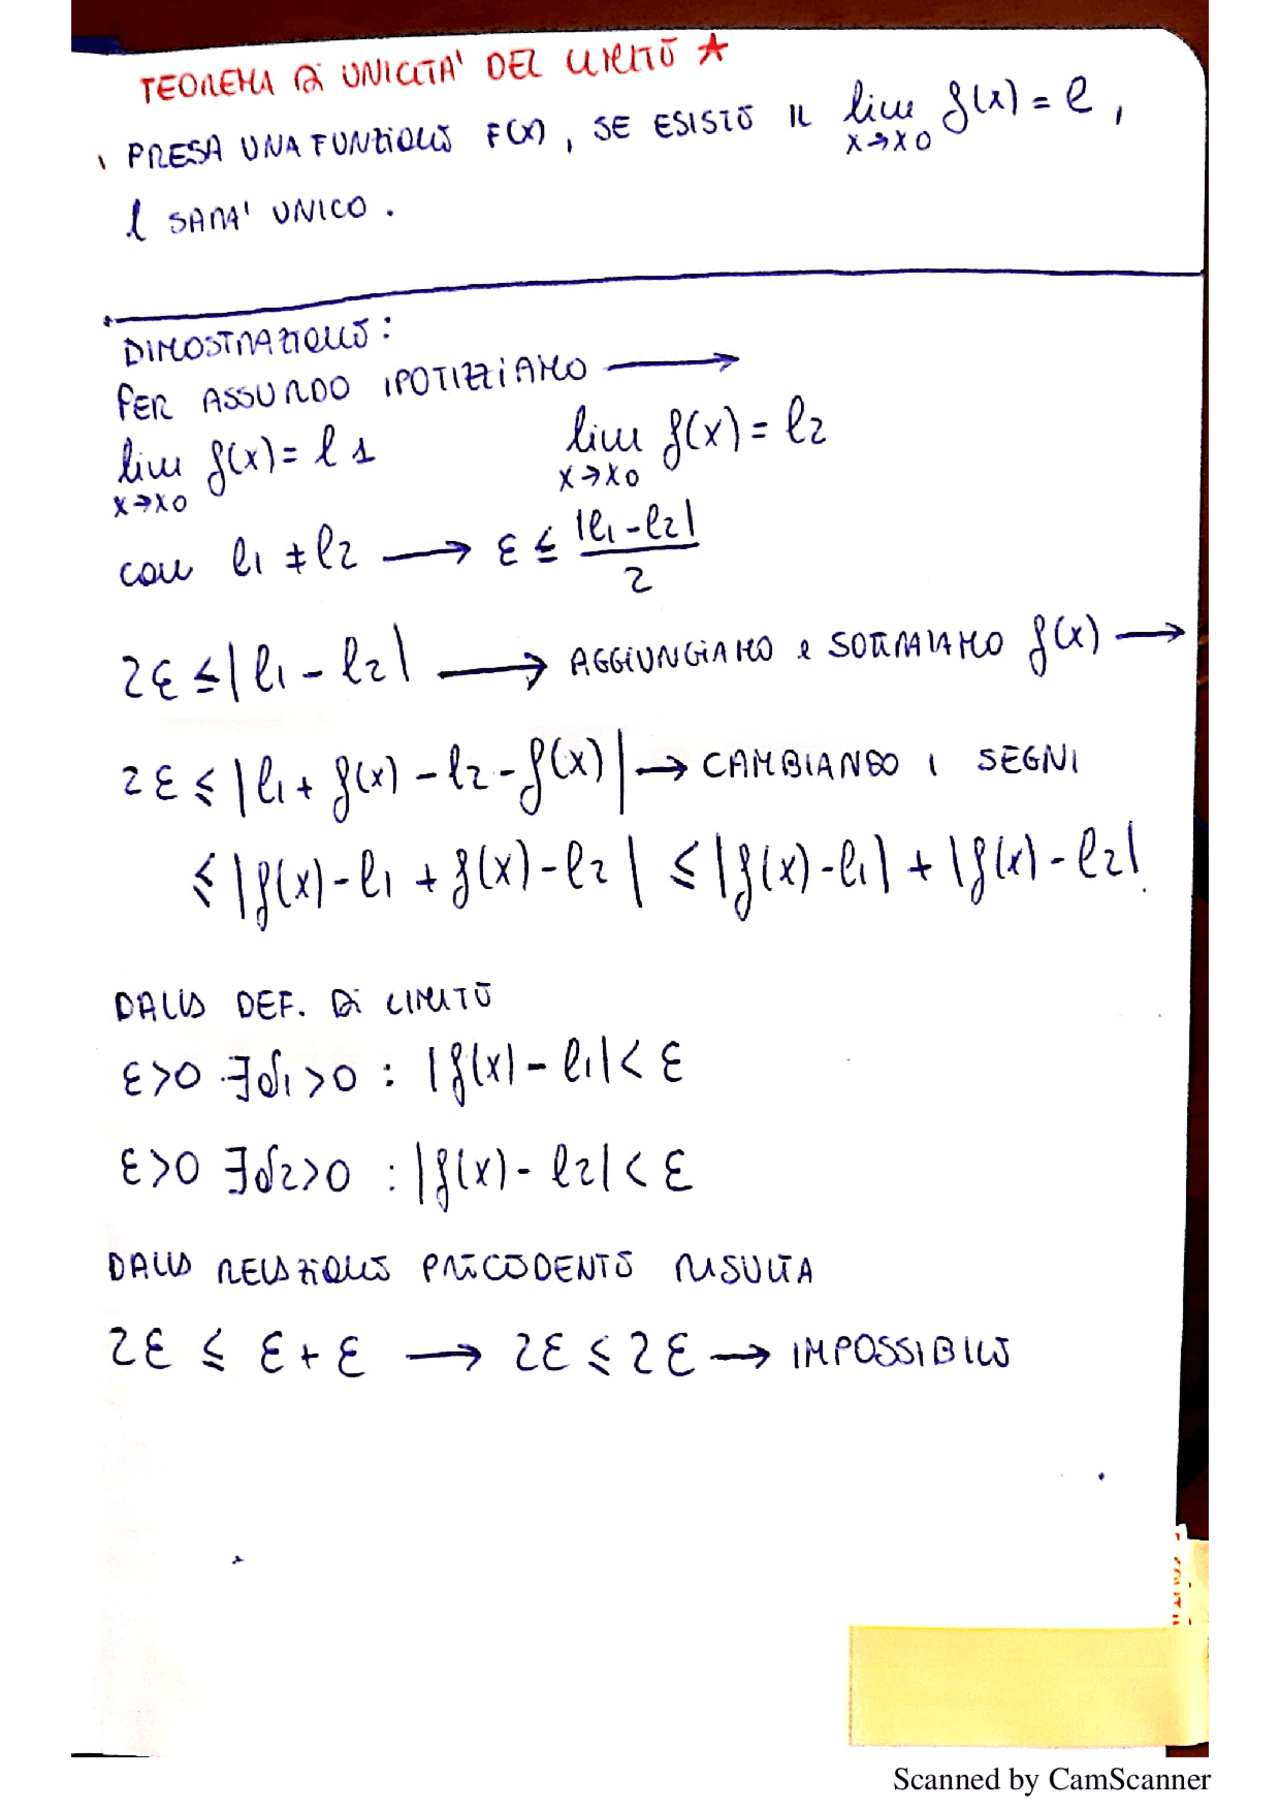 TEOREMA DI UNICITA' DEL LIMITE ★
PRESA UNA FUNZIONE F(x), SE ESISTE IL lim f(x) = l,
x→x0
l SARA' UNICO.
DIMOSTRAZIONE:
PER ASSURDO IPOTIZZIAMO →
lim f(x) = l1 lim f(x) = l2
x→x0 x→x0
con l1 ≠ l2 → ε ≤ |l1 - l2| / 2
2ε ≤ |l1 - l2| → AGGIUNGIAMO e SOTTRAIAMO f(x) →
2ε ≤ |l1 + f(x) - l2 - f(x)| → CAMBIANDO I SEGNI
≤ |f(x) - l1 + f(x) - l2| ≤ |f(x) - l1| + |f(x) - l2|
DALLA DEF. DI LIMITE
ε>0 ∃δ1>0 : |f(x) - l1| < ε
ε>0 ∃δ2>0 : |f(x) - l2| < ε
DALLA RELAZIONE PRECEDENTE RISULTA
2ε ≤ ε + ε → 2ε ≤ 2ε → IMPOSSIBILE
Scanned by CamScanner